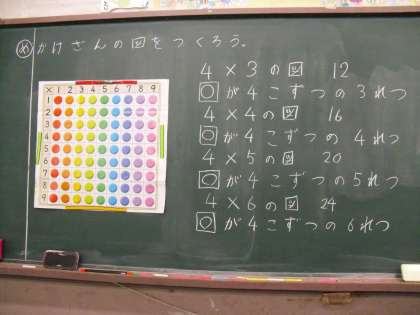 め かけざんの図をつくろう。
× 1 2 3 4 5 6 7 8 9
1
2
3
4
5
6
7
8
9
4×3の図 12
○が4こずつの3れつ
4×4の図 16
○が4こずつの4れつ
4×5の図 20
○が4こずつの5れつ
4×6の図 24
○が4こずつの6れつ